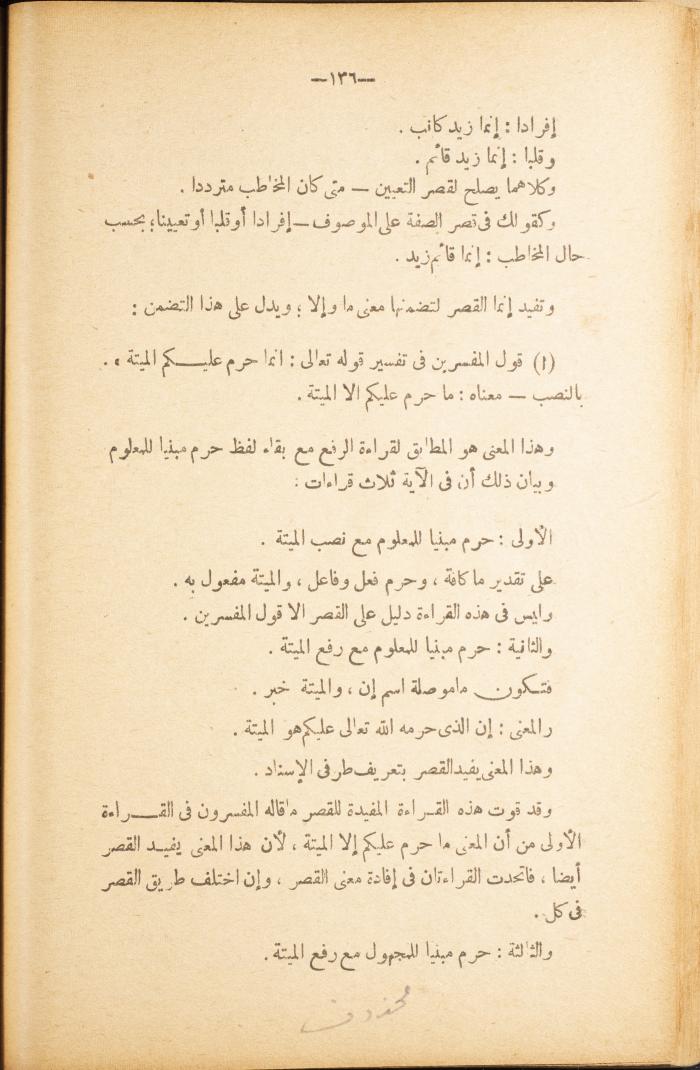 —١٣٦—
إفرادا : إنما زيد كاتب .
وقلبا : إنما زيد قائم .
وكلاهما يصلح لقصر التعيين — متى كان المخاطب مترددا .
وكقولك فى قصر الصفة على الموصوف — إفرادا أو قلبا أو تعيينا ؛ بحسب
حال المخاطب : إنما قائم زيد .
وتفيد إنما القصر لتضمنها معنى ما وإلا ؛ ويدل على هذا التضمن :
(١) قول المفسرين فى تفسير قوله تعالى : انما حرم عليكم الميتة » .
بالنصب — معناه : ما حرم عليكم الا الميتة .
وهذا المعنى هو المطابق لقراءة الرفع مع بقاء لفظ حرم مبنيا للمعلوم
وبيان ذلك أن فى الآية ثلاث قراءات :
الأولى : حرم مبنيا للمعلوم مع نصب الميتة .
على تقدير ما كافة ، وحرم فعل وفاعل ، والميتة مفعول به .
وليس فى هذه القراءة دليل على القصر الا قول المفسرين .
والثانية : حرم مبنيا للمعلوم مع رفع الميتة .
فتكون ما موصلة اسم إن ، والميتة خبر .
والمعنى : إن الذى حرمه الله تعالى عليكم هو الميتة .
وهذا المعنى يفيد القصر بتعريف طرفى الإسناد .
وقد قوت هذه القراءة المفيدة للقصر ما قاله المفسرون فى القراءة
الأولى من أن المعنى ما حرم عليكم إلا الميتة ، لأن هذا المعنى يفيد القصر
أيضا ، فاتحدت القراءتان فى إفادة معنى القصر ، وإن اختلف طريق القصر
فى كل .
والثالثة : حرم مبنيا للمجهول مع رفع الميتة .
محذوف